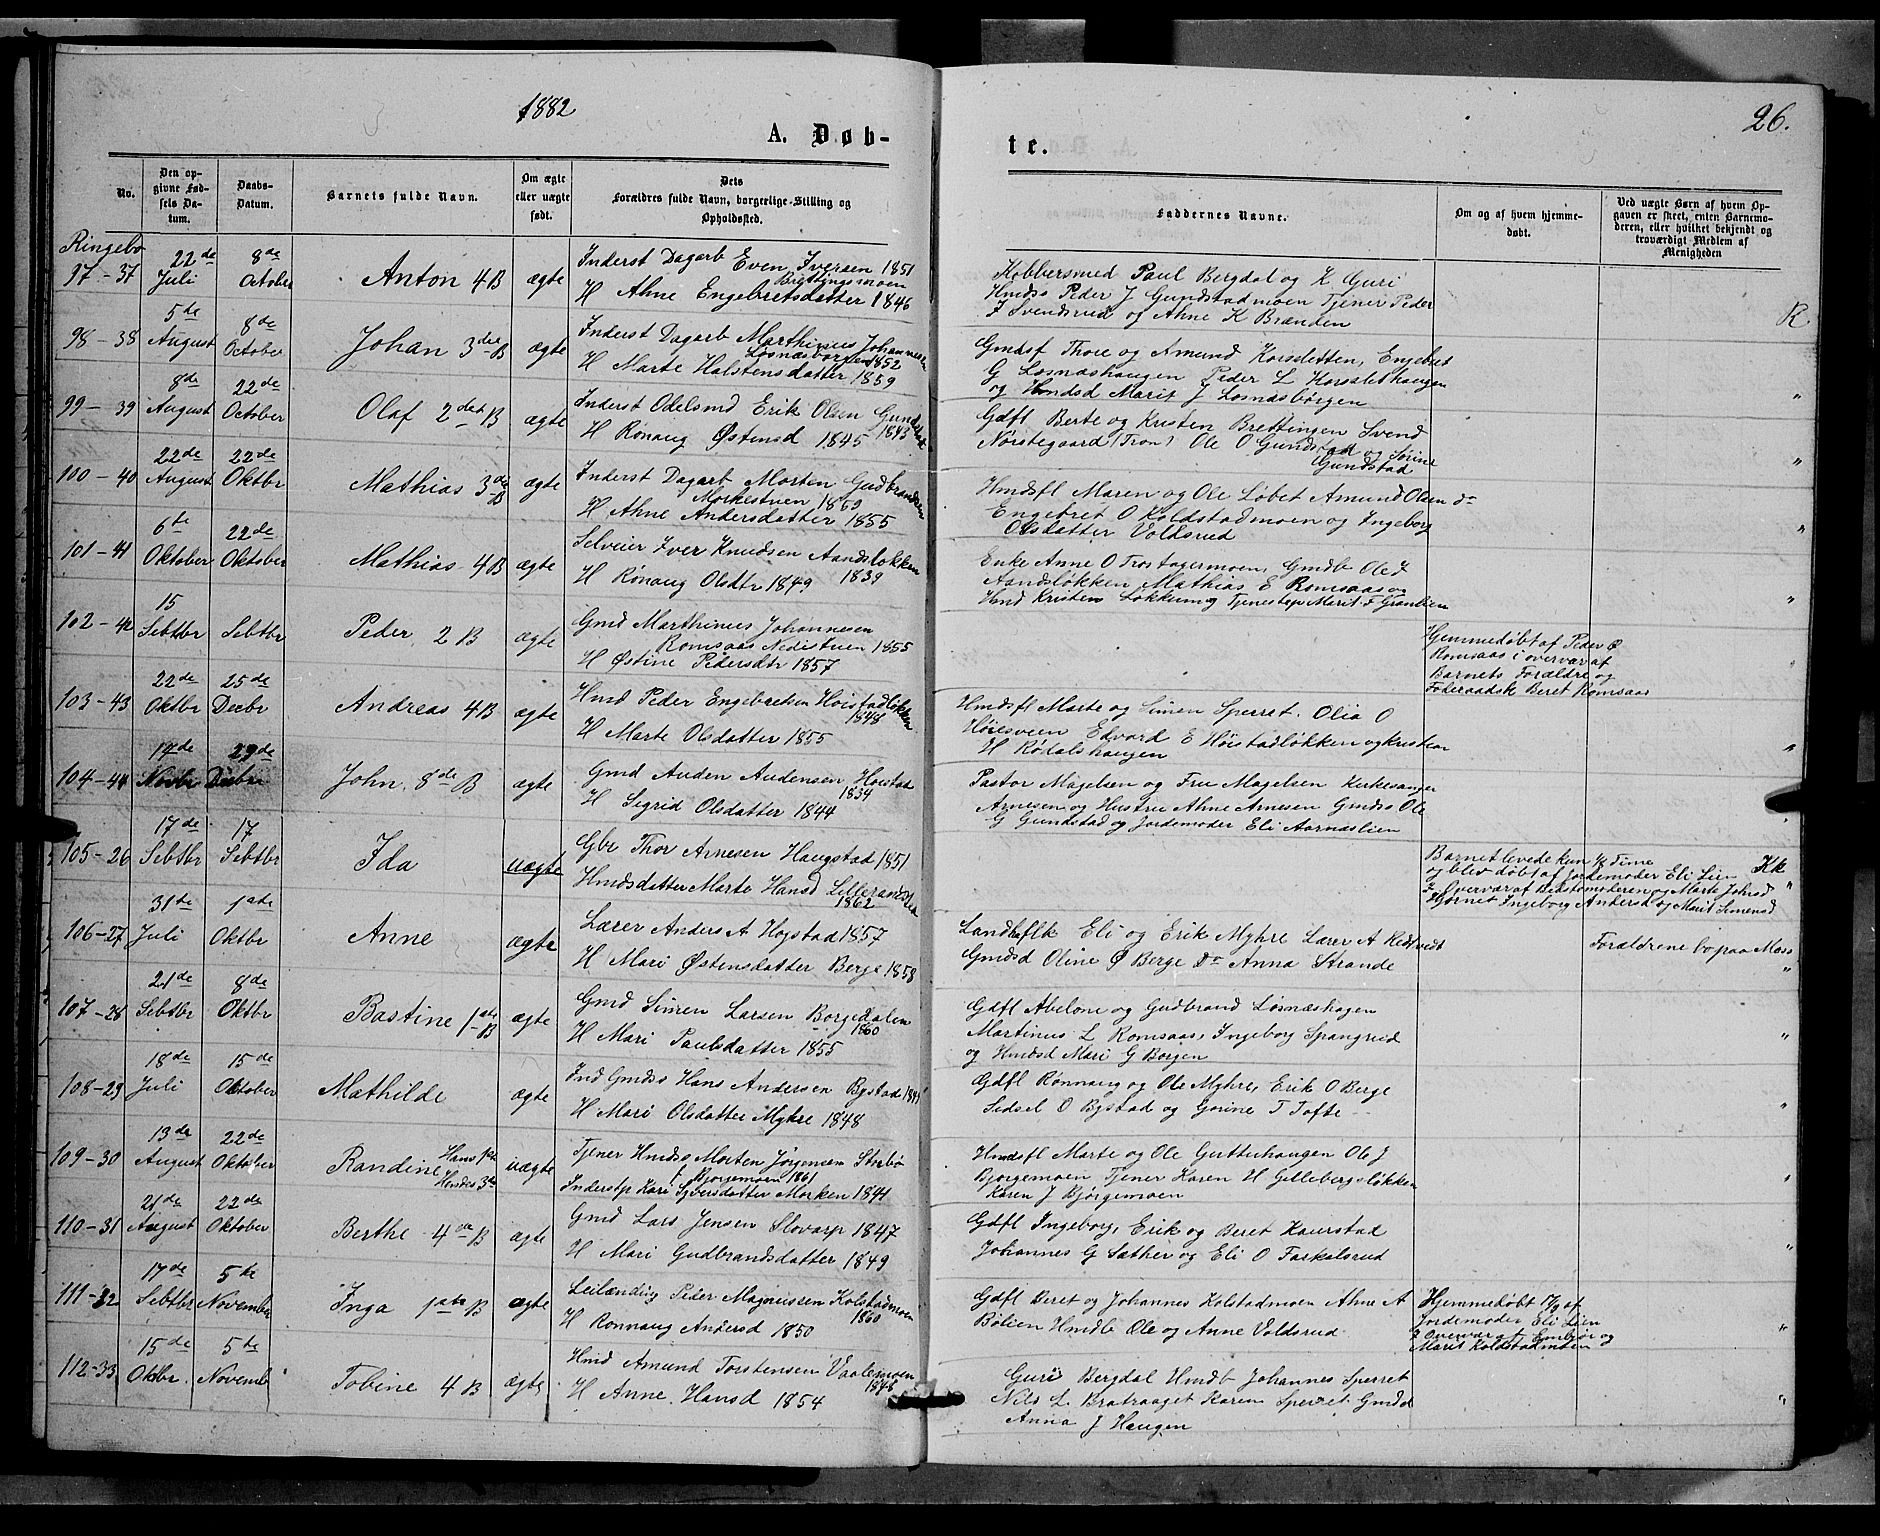 1882
A. Døb-
No.
Den op-
givne Fød-
sels Da-
tum.
Daabs-
Datum.
Barnets fulde Navn.
Om ægte
eller uægte
født.
Dets
Forældres fulde Navn, borgerlige Stilling og
Opholdssted.
Ringebo
97-37
22de
Juli
8de
October
Anton 4 B
ægte
Inderst Dagarb Even Iversen 1851
Brettingsmoen
H Ahne Engebretsdatter 1846
98-38
5de
August
8de
October
Johan 3die B
ægte
Inderst Dagarb Marthinus Johannesen
Losnæsborgen 1852
H Marte Halstensdatter 1859
99-39
8de
August
22de
October
Olaf 2det B
ægte
Inderst Odelsmd Erik Olsen Gundstad
1843
H Rønaug Østensd 1845
100-40
22de
August
22de
Oktbr
Mathias 3die B
ægte
Inderst Dagarb Morten Gudbrandsen
Morkestuen 1859
H Ahne Andersdatter 1855
101-41
6te
Oktober
22de
Oktober
Mathias 4 B
ægte
Selveier Iver Knudsen Aandsløkken
1839
H Rønaug Olsdtr 1849
102-42
15
Sebtbr
Sebtbr
Peder 2 B
ægte
Gmd Marthinus Johannesen
Romsaas Nedistuen 1855
H Østine Pedersdtr 1857
103-43
22de
Oktbr
25de
Decbr
Andreas 4 B
ægte
Hmd Peder Engebretsen Høistadløkken
1848
H Marte Olsdatter 1855
104-44
Novbr
Decbr
John 8de B
ægte
Gmd Auden Audensen Høistad
1839
H Sigrid Olsdatter 1844
105-26
17de
Sebtbr
17
Sebtbr
Ida
uægte
Gbr Thor Arnesen Haugstad 1851
Hmdsdatter Marte Hansd
1862
106-27
31de
Juli
1ste
Oktbr
Anne
ægte
Lærer Anders A Høgstad 1857
H Mari Østensdatter Berge 1858
107-28
21de
Sebtbr
8de
Oktbr
Bastine 1ste B
ægte
Gmd Simen Larsen Borgedalen
1860
H Mari Paulsdatter 1855
108-29
18de
Juli
15de
Oktober
Mathilde
ægte
Ind Gmdss Hans Andersen Bystad
H Mari Olsdatter Myhre 1848
109-30
13de
August
22de
Oktober
Randine
Hans 1ste
Hendes 3de
uægte
Tjener Hmdss Morten Jørgensen Strebø
Bjørgemoen 1861
Inderstp Kari Syversdatter Morken 1844
110-31
21de
August
22de
Oktober
Berthe 4de B
ægte
Gmd Lars Jensen Slovarp 1847
H Mari Gudbrandsdatter 1849
111-32
17de
Sebtbr
5te
November
Inga 1ste B
ægte
Leilænding Peder Magnussen Kolstadmoen
1860
H Ronnaug Andersd 1850
112-33
15de
Oktbr.
5te
Novemb
Tobine 4 B
ægte
Hmd Amund Torstensen Vaalemoen
1848
H Anne Hansd 1854
26.
te.
Faddernes Navne.
Om og af hvem hjemme-
døbt.
Ved uægte Børn af hvem Op-
gaven er skeet, enten Barnemo-
deren, eller hvilket bekjendt og
troværdigt Medlem af
Menigheden
Kobbersmed Paul Bergdal og K Guri
Hmdss Peder J Gundstadmoen Tjener Peder
I Svendsrud og Ahne K Brænden
R
Gmdsf Thore og Amund Korssletten, Engebret
G Losnæshaugen Peder L Korsslethaugen
og Hmdsd Marit J Losnæsborgen
Gdfl Berte og Kristen Brettingen Svend
Nørstegaard (Tron) Ole O Gundstad og Sørine
Gundstad
Hmdsfl Maren og Ole Løbet Amund Olsen do
Engebret O Koldstadmoen og Ingeborg
Olsdatter Voldsrud
Enke Anne O Trostagermoen, Gmdb Ole I
Aandsløkken Mathias E Romsaas og
Hmd Kristen Løkken og Tjenestep Marit F Granlien
Hjemmedøbt af Peder Ø
Romsaas i overvær af
Barnets Forældre og
Føderaadsk Beret Romsaas
Hmdsfl Marte og Simen Sperret. Olia O
Høiesveen Edvard E Høistadløkken og Kristian
H Rødalshaugen
Pastor Magelsen og Fru Magelsen Kirkesanger
Arnesen og Hustru Ahne Arnesen Gmdss Ole
G Gundstad og Jordemoder Eli Aarnæslien
Barnet levede kun ½ Time
og blev døbt af Jordemoder Eli Lien
I Overvær af Bedstemoderen og Marte Johnsd
Hjørnet Ingeborg Andersd og Marit Simensd
Kk
Landhflk Eli og Erik Myhre Lærer A
Gmdsd Oline Ø Berge Do Anna Strande
Forældrene bo paa Moss
Gdfl Abelone og Gudbrand Losnæshagen
Martinus L Romsaas, Ingeborg Spangrud
og Hmdsd Mari G Borgen
Gdfl Rønnaug og Ole Myhre, Erik O Berge
Sidsel O Bystad og Gorine T Tofte
Hmdsfl Marte og Ole Gutterhaugen Ole J
Bjørgemoen Tjener Karen H Gillebergsløkken
Karen J Bjørgemoen
Gdfl Ingeborg, Erik og Beret Kaurstad
Johannes G Sæther og Eli O Farkalsrud
Gdfl Beret og Johannes Kolstadmoen Ahne A
Bølien Hmdb Ole og Anne Voldsrud
Hjemmedøbt 17/9 af
Jordemoder Eli Lien
I Overvær af Embjør og
Marit Koldstadmoen
Guri Bergdal Hmdb Johannes Sperret
Nils L Bratraaget Karen Sperret Gmdd
Anna J Haugen